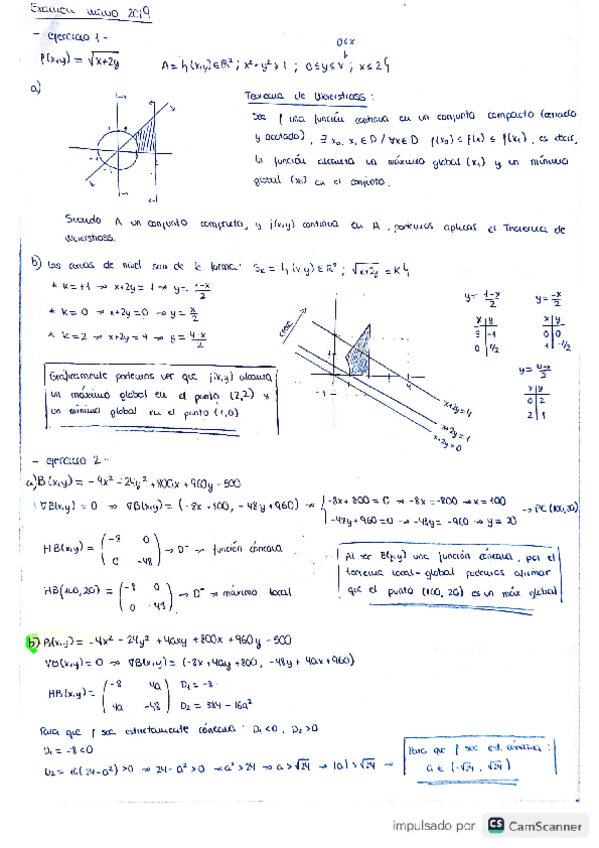 Examen mayo 2019
- ejercicio 1 -
f(x,y) = √x+2y
0≤x
A = {(x,y) ∈ ℝ² ; x²+y² ≥ 1 ; 0≤y≤x ; x≤2}
a)
Teorema de Weierstrass :
Sea f una función continua en un conjunto compacto (cerrado
y acotado), ∃ x₀, x₁ ∈ D / ∀x∈D f(x₀) ≤ f(x) ≤ f(x₁), es decir,
la función alcanza un máximo global (x₁) y un mínimo
global (x₀) en el conjunto.
Siendo A un conjunto compacto, y f(x,y) continua en A, podemos aplicar el Teorema de
Weierstrass.
b) Las curvas de nivel son de la forma: Sₖ = {(x,y) ∈ ℝ² ; √x+2y = K}
* K=+1 → x+2y=1 → y= 1-x/2
* K=0 → x+2y=0 → y= x/2
* K=2 → x+2y=4 → y= 4-x/2
crec
x+2y=4
x+2y=1
x+2y=0
y= 1-x/2
x | y
3 | -1
0 | 1/2
y= -x/2
x | y
0 | 0
1 | -1/2
y= 4-x/2
x | y
0 | 2
2 | 1
Gráficamente podemos ver que f(x,y) alcanza
un máximo global en el punto (2,2) y
un mínimo global en el punto (1,0)
- ejercicio 2 -
a) B(x,y) = -4x² -24y² + 800x + 960y - 500
∇B(x,y) = 0 → ∇B(x,y) = (-8x+800, -48y+960) → { -8x+800 = 0 → -8x = -800 → x=100
-48y+960=0 → -48y = -960 → y = 20
→ PC (100,20)
HB(x,y) = ( -8 0
0 -48 ) → D⁻ → función cóncava
HB(100,20) = ( -8 0
0 -48 ) → D⁻ → máximo local
Al ser B(x,y) una función cóncava, por el
teorema local-global podemos afirmar
que el punto (100,20) es un máx global
b) B(x,y) = -4x² - 24y² + 4axy + 800x + 960y - 500
∇B(x,y)=0 → ∇B(x,y) = (-8x+4ay+800, -48y+4ax+960)
HB(x,y) = ( -8 4a
4a -48 ) D₁ = -8
D₂ = 384 - 16a²
Para que f sea estrictamente cóncava : D₁<0, D₂>0
D₁ = -8 <0
D₂= 16(24-a²) >0 → 24-a² >0 → a² > 24 → a > √24 → |a| > √24 →
Para que f sea est. cóncava :
a ∈ (-√24, √24)
impulsado por CS CamScanner